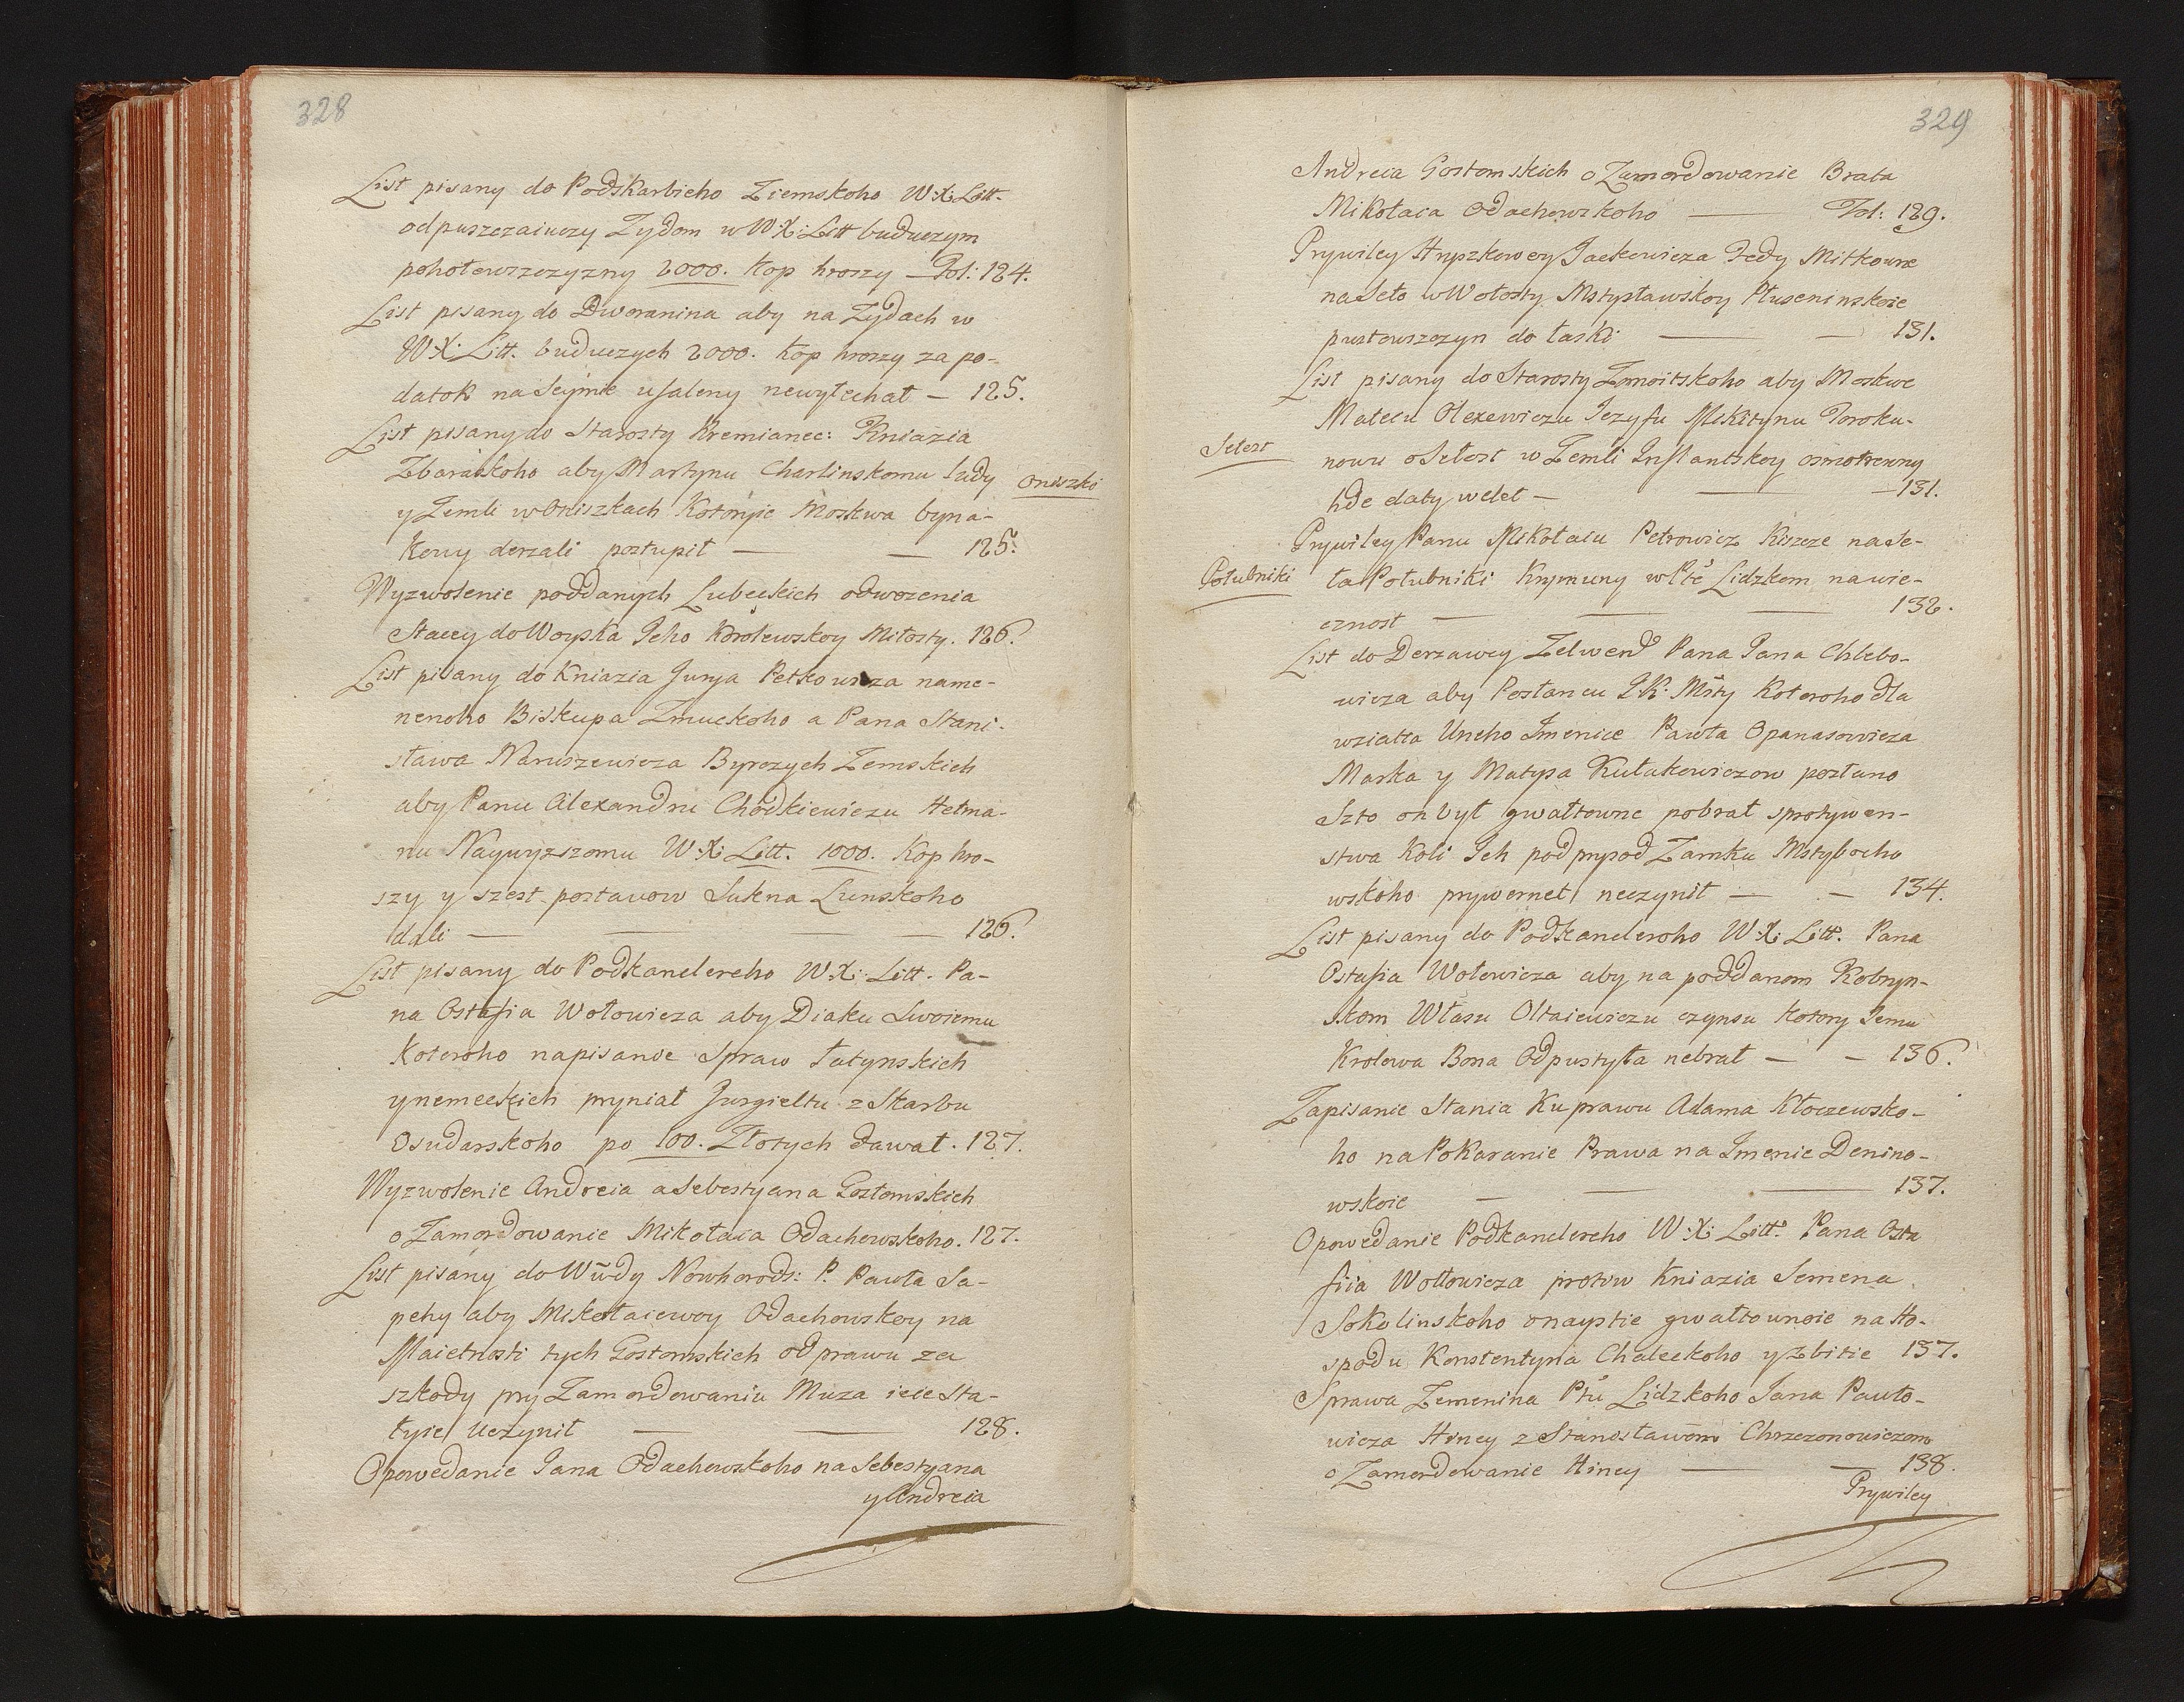 328
List pisany do Podskarbieho Ziemskoho W: X: Litt.
odpuszczaiuczy Zydom w W X: Litt buduczym
poholowszczyzny 2000. kop hroszy — Fol: 124.
List pisany do Dworanina aby na Zydach w
W: X: Litt. buduczych 2000. kop hroszy za po-
datok na Seymie usaleny newytechał — 125.
List pisany do Starosty Kremianec: Kniazia
Zbarażkoho aby Martynu Charlinskomu ludy
Oniszki
y Zemli w Oniszkach Kotoryie Moskwa byna-
Kowy derzali postupil — — 125.
Wyzwolenie poddanych Lubeckich odwozenia
Stacey do Woyska Jeho Korolewskoy Miłosty. 126.
List pisany do Kniazia Jurja Petkowicza name-
nenoho Biskupa Zmuckoho a Pana Stani-
sława Naruszewicza Byrczych Zemskich
aby Panu Alexandru Chodkiewiczu Hetma-
nu Naywyższomu W: X: Litt. 1000. kop hro-
szy y szest postawow Sukna Lunskoho
dali — — — — 126.
List pisany do Podkanclereho W: X: Litt. Pa-
na Ostafia Wołowicza aby Diaku Swoiemu
Kotoroho napisanie spraw Łatynskich
y nemeckich pryniał Jurgieltu z Skarbu
Osudarskoho po 100. Złotych dawał. 127.
Wyzwolenie Andreia a Sebestyana Gostomskich
o Zamordowanie Mikołaia Odachowskoho. 127.
List pisany do Wwdy Nowhorods: P. Pawła Sa-
pehy aby Mikołaiewoy Odachowskoy na
Maietnosti tych Gostomskich odprawu za
szkody pry Zamordowaniu Muza ieie sta-
łyie uczynił — — 128.
Opowedanie Jana Odachowskoho na Sebestyana
y Andreia
329
Andreia Gostomskich o Zamordowanie Brata
Mikołaia Odachowskoho — Fol: 129.
Prywiley Hryszkowoy Jackowicza Fedy Mitkowne
na Seło w Wołosty Mstysławskoy Pluseninskoie
pustowszczyn do łaski — — 131.
List pisany do Starosty Zmoitskoho aby Moskwe
Matecu Olexewiczu Jezyfu Mikitynu Toroku-
Selest
nowu o Selest w Zemli Inflantskoy osmotrewny
hde daty welel — — 131.
Prywiley Panu Mikołaiu Petrowicz Kiszcze na Se-
Połubniki
ła Połubniki Krymuny w Ptě Lidzkom na wie-
cznost — — — 132.
List do Derzawcy Zelwend Pana Jana Chlebo-
wicza aby Posłancu J. K. Msty Kotoroho dla
wziatia Uneho Imenice Pawła Opanasowicza
Marka y Matysa Kułakowiczow posłano
Szto on był gwałtowne pobrał sprotywen-
stwa Koli Jeh podpryod Zamku Mstyboho
wskoho prywernet neczynił — — 134.
List pisany do Podkancleroho W: X: Litt. Pana
Ostafia Wołowicza aby na poddanom Kobryn-
skom Własu Oltaiewiczu czynsu Kotory Jemu
Krolowa Bona Odpustyła nebrał — — 136.
Zapisanie Stania Ku prawu Adama Kłoczewsko-
ho na Pokazanie Prawa na Imenie Denino-
wskoie — — — 137.
Opowedanie Podkanclereho W: X: Litt. Pana Osta
fiia Wołłowicza protiw Kniazia Semena
Sokolinskoho o nayście gwałtownoie na Ho-
spodu Konstentyna Chaleckoho y Zbitie 137.
Sprawa Zemenina Ptu Lidzkoho Jana Pawło-
wicza Hincy z Stanosławom Chrzczonowiczom
o Zamordowanie Hincy — — 138.
Prywiley